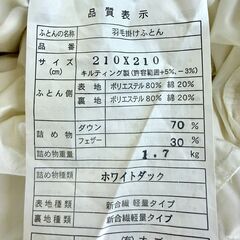 品質表示
ふとんの名称 羽毛掛けふとん
サイズ(cm) 210X210
キルティング製(許容範囲+5%,-3%)
ふとん側 表地 ポリエステル80% 綿20%
裏地 ポリエステル80% 綿20%
詰め物 ダウン 70 %
フェザー 30 %
詰め物重量 1.7 kg
詰め物種類 ホワイトダック
表地種類 新合繊軽量タイプ
裏地種類 新合繊軽量タイプ